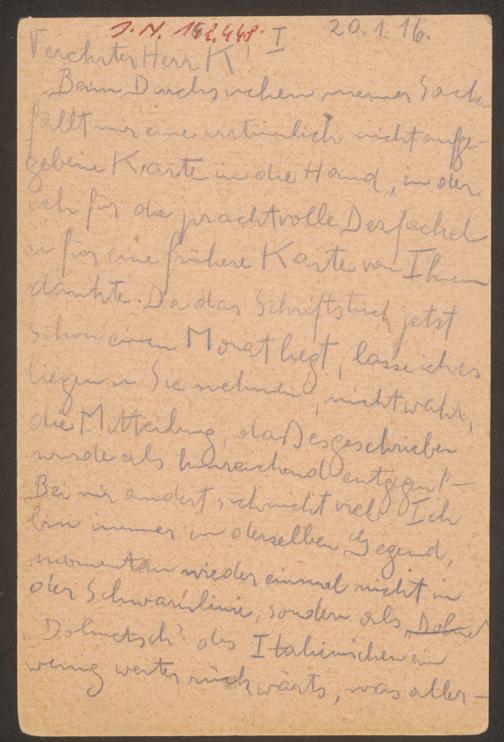 J. N. 162.448 I 20.1.16.
Verehrter Herr K!
Beim Durchsuchen meiner Sachen
fällt mir eine irrtümlich nicht aufge-
gebene Karte in die Hand, in der
ich für die prachtvolle Der Fackel
u für eine frühere Karte von Ihnen
dankte. Da das Schriftstück jetzt
schon einen Monat liegt, lasse ich es
liegen u Sie nehmen, nicht wahr,
die Mitteilung, daß es geschrieben
wurde als hinreichend entgegen! –
Bei mir ändert sich nicht viel. Ich
bin immer in derselben Gegend,
momentan wieder einmal nicht in
der Schwarmlinie, sondern als
Dolmetsch des Italienischen ein
wenig weiter rückwärts, was aller-